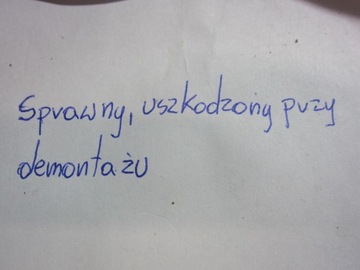 Sprawny, uszkodzony przy
demontażu